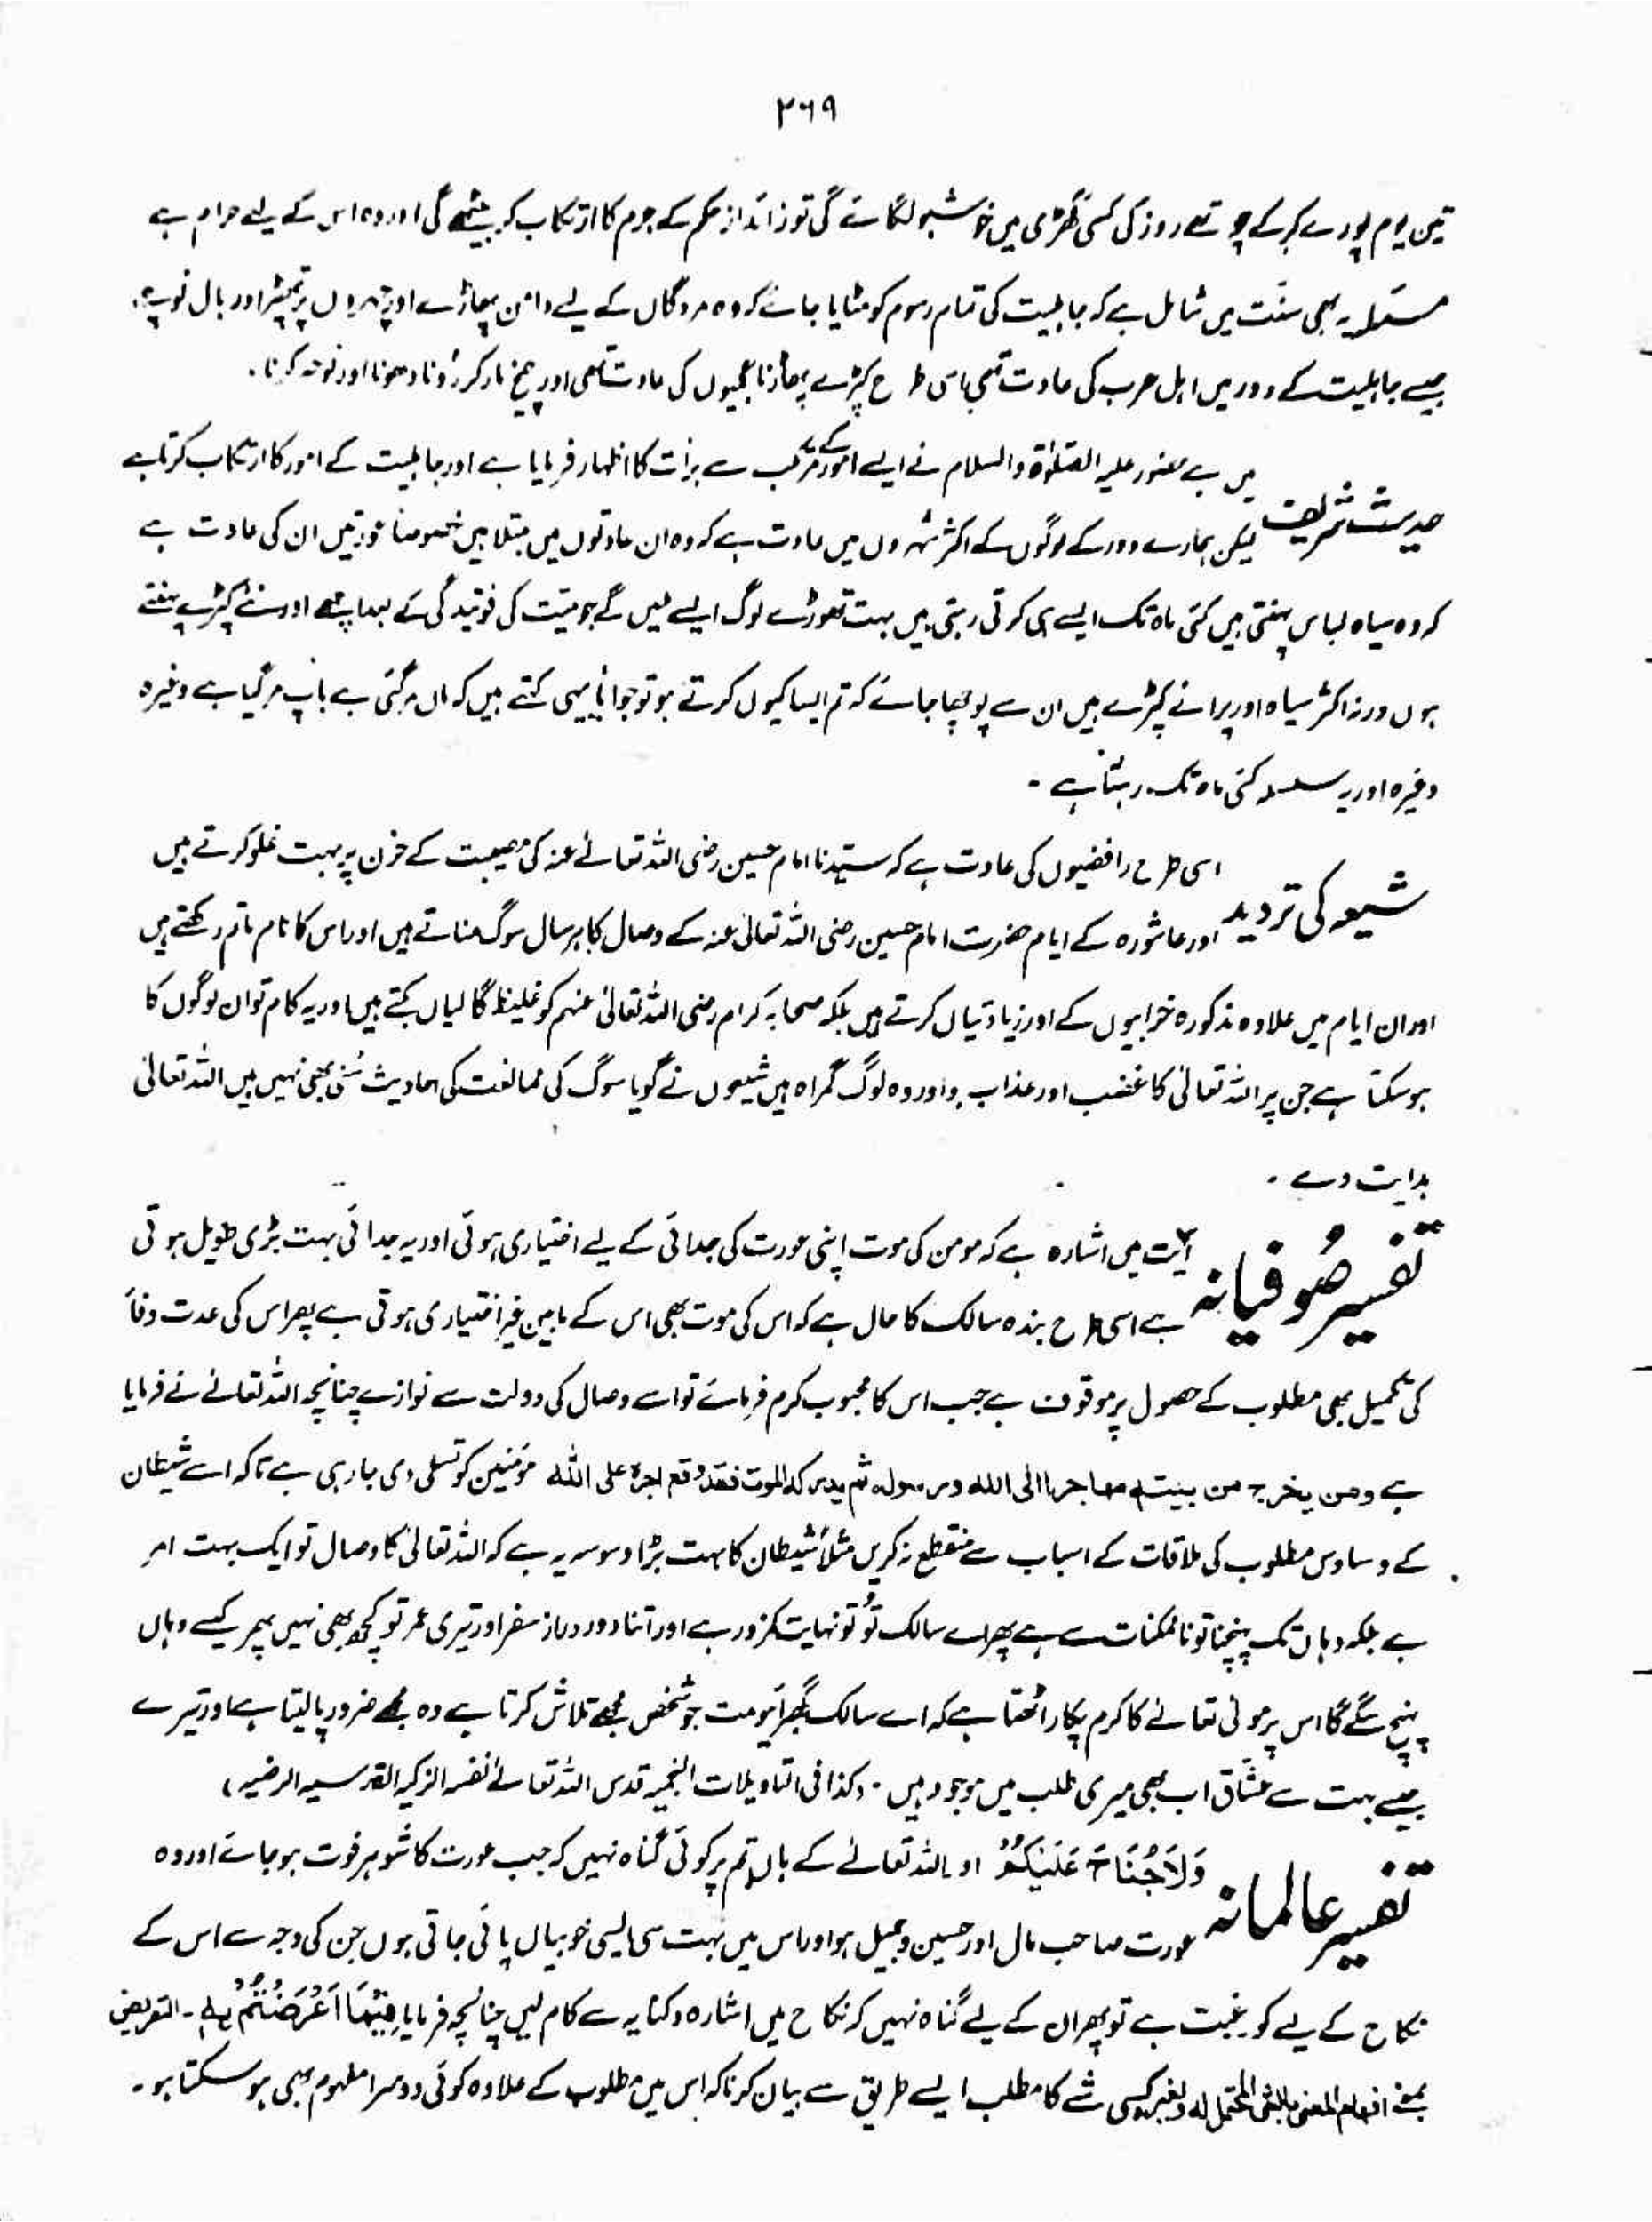 ۲۶۹
تین یوم پورے کر کے چوتھے روز کی کسی گھڑی میں خوشبو لگائے گی تو زائد از حکم کے جرم کا ارتکاب کر بیٹھے گی اور وہ اس کے لیے حرام ہے
مسئلہ یہ بھی سنّت میں شامل ہے کہ جاہلیت کی تمام رسوم کو مٹایا جائے کہ وہ مردگاں کے لیے دامن پھاڑے اور چہروں پر تھپڑ اور بال نوچے،
جیسے جاہلیت کے دور میں اہل عرب کی عادت تھی اسی طرح کپڑے پھاڑنا عجمیوں کی عادت تھی اور چیخ مار کر رونا دھونا اور نوحہ کرنا.
حدیث شریف میں ہے حضور علیہ الصلوٰۃ والسلام نے ایسے امور کے مرتکب سے برأت کا اظہار فرمایا ہے اور جاہلیت کے امور کا ارتکاب کرتا ہے
لیکن ہمارے دور کے لوگوں کے اکثر شہروں میں عادت ہے کہ وہ ان عادتوں میں مبتلا ہیں خصوصاً عورتیں ان کی عادت ہے
کہ وہ سیاہ لباس پہنتی ہیں کئی ماہ تک ایسے ہی کرتی رہتی ہیں بہت تھوڑے لوگ ایسے ملیں گے جو میّت کی فوتیدگی کے بعد اچھے اور نئے کپڑے پہنتے
ہوں ورنہ اکثر سیاہ اور پرانے کپڑے ہیں ان سے پوچھا جائے کہ تم ایسا کیوں کرتے ہو تو جواباً یہی کہتے ہیں کہ ماں مرگئی ہے باپ مرگیا ہے وغیرہ
وغیرہ اور یہ سلسلہ کئی ماہ تک رہتا ہے -
شیعہ کی تردید اسی طرح رافضیوں کی عادت ہے کہ سیّدنا امام حسین رضی اللہ تعالےٰ عنہ کی مصیبت کے حزن پر بہت غلو کرتے ہیں
اور عاشورہ کے ایام حضرت امام حسین رضی اللہ تعالیٰ عنہ کے وصال کا ہر سال سوگ مناتے ہیں اور اس کا نام ماتم رکھتے ہیں
اور ان ایام میں علاوہ مذکورہ خرابیوں کے اور زیادتیاں کرتے ہیں بلکہ صحابہ کرام رضی اللہ تعالیٰ عنہم کو غلیظ گالیاں بکتے ہیں اور یہ کام تو ان لوگوں کا
ہوسکتا ہے جن پر اللہ تعالیٰ کا غضب اور عذاب ہو اور وہ لوگ گمراہ ہیں شیعوں نے گویا سوگ کی ممانعت کی احادیث سنی بھی نہیں ہیں اللہ تعالیٰ
ہدایت دے.
تفسیر صُوفیانہ آیت میں اشارہ ہے کہ مومن کی موت اپنی عورت کی جدائی کے لیے اختیاری ہوئی اور یہ جدائی بہت بڑی طویل ہوتی
ہے اسی طرح بندہ سالک کا حال ہے کہ اس کی موت بھی اس کے مابین غیر اختیاری ہوتی ہے پھر اس کی عدت وفات
کی تکمیل بھی مطلوب کے حصول پر موقوف ہے جب اس کا محبوب کرم فرمائے تو اسے وصال کی دولت سے نوازے چنانچہ اللہ تعالےٰ نے فرمایا
ہے ومن یخرج من بیتہ مهاجرا الی اللہ ورسولہ ثم یدرکہ الموت فقد وقع اجرہ علی اللہ مؤمنین کو تسلی دی جا رہی ہے تاکہ اسے شیطان
کے وساوس مطلوب کی ملاقات کے اسباب سے منقطع نہ کریں مثلاً شیطان کا بہت بڑا وسوسہ یہ ہے کہ اللہ تعالیٰ کا وصال تو ایک بہت امر
ہے بلکہ وہاں تک پہنچنا تو ناممکنات سے ہے پھر اے سالک تُو تو نہایت کمزور ہے اور اتنا دور دراز سفر اور تیری عمر تو کچھ بھی نہیں پھر کیسے وہاں
پہنچ سکے گا اس پر مولیٰ تعالےٰ کا کرم پکار اٹھتا ہے کہ اے سالک گھبرائیو مت جو شخص مجھے تلاش کرتا ہے وہ مجھے ضرور پالیتا ہے اور تیرے
جیسے بہت سے عشّاق اب بھی میری طلب میں موجود ہیں. (کذا فی التاویلات النجمیہ قدس اللہ تعالےٰ نفسہ الزکیہ القدسیہ الرضیہ)
تفسیر عالمانہ وَلَا جُنَاحَ عَلَیْکُمْ اور اللہ تعالےٰ کے ہاں تم پر کوئی گناہ نہیں کہ جب عورت کا شوہر فوت ہو جائے اور وہ
عورت صاحب مال اور حسین و جمیل ہو اور اس میں بہت سی ایسی خوبیاں پائی جاتی ہوں جن کی وجہ سے اس کے
نکاح کے لیے کو رغبت ہے تو پھر ان کے لیے گناہ نہیں کہ نکاح میں اشارہ و کنایہ سے کام لیں چنانچہ فرمایا فِیْمَا اَعْرَضْتُمْ بِہٖ - التعریض
بمعنے افہام المعنی بالشی المحتمل لہ ولغیرہ کسی شے کا مطلب ایسے طریق سے بیان کرنا کہ اس میں مطلوب کے علاوہ کوئی دوسرا مفہوم بھی ہوسکتا ہو-